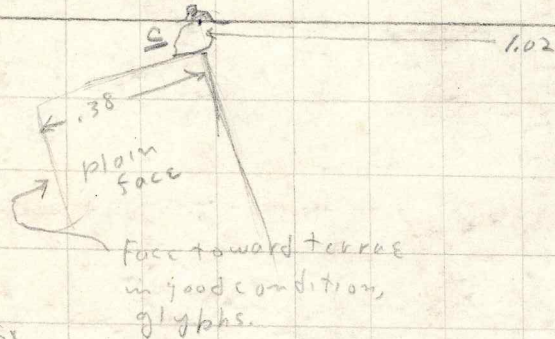 C
1.02
.38
plain
face
face toward terrace
in good condition,
glyphs.